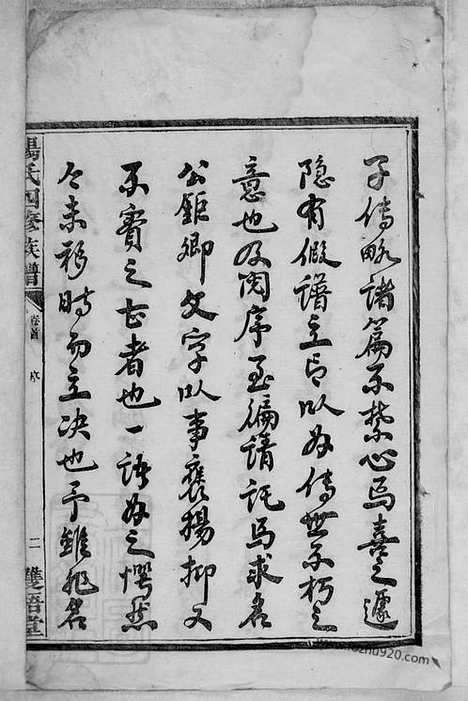 子傳略諸篇不禁心焉喜之遽
隐有假譜立言以為傳世不朽之
意也及閱序至徧請託焉求名
公鉅卿文字以事襃揚抑又
不實之甚者也一語為之愕然
今未移時而立决也予雖非名
楊氏四修族譜
卷首
序
二
雙語堂
www.jiapu920.com